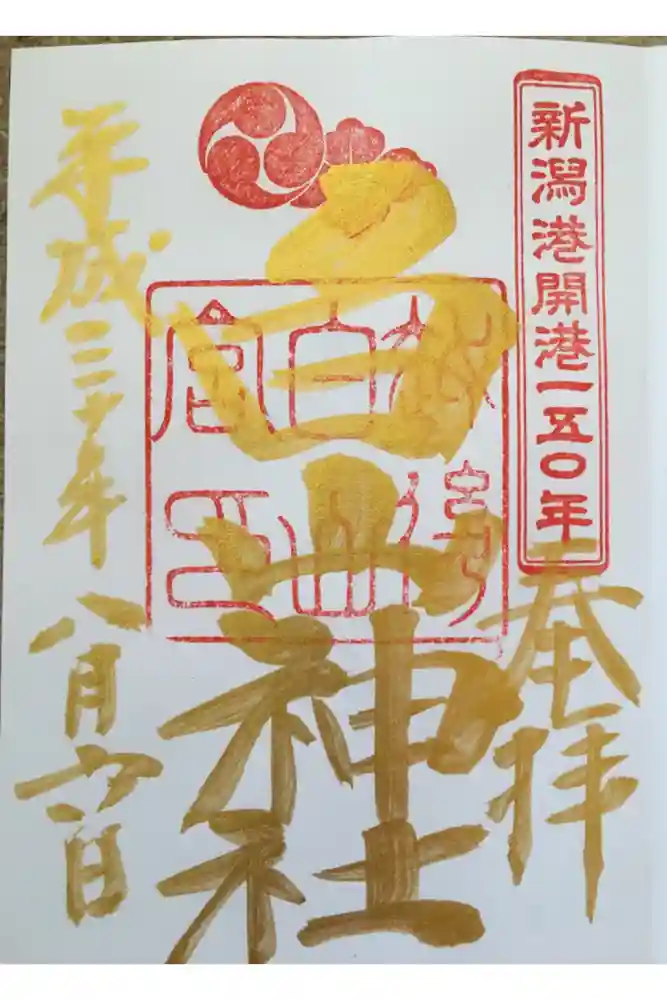 新潟港開港一五〇年
奉拝
白山神社
白山
宮印
平成三十年
八月六日